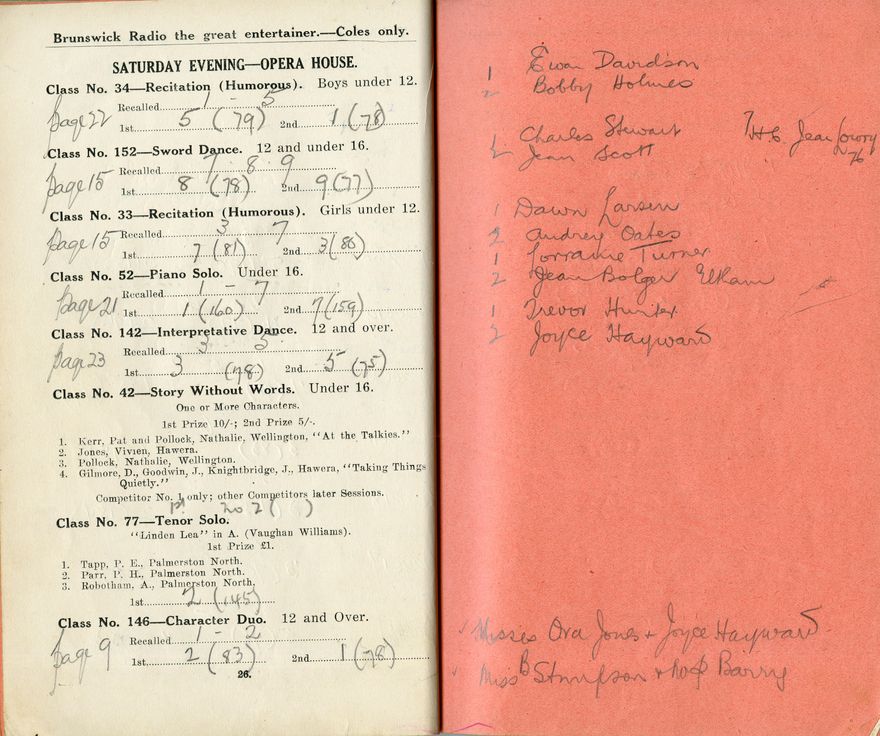 Brunswick Radio the great entertainer.—Coles only.
SATURDAY EVENING—OPERA HOUSE.
Class No. 34—Recitation (Humorous). Boys under 12.
page 22 Recalled 1 - 5
1st 5 (79) 2nd 1 (78)
Class No. 152—Sword Dance. 12 and under 16.
7. 8. 9
page 15 1st 8 (78) 2nd 9 (77)
Class No. 33—Recitation (Humorous). Girls under 12.
page 15 Recalled 3 7
1st 7 (81) 2nd 3 (80)
Class No. 52—Piano Solo. Under 16.
page 21 Recalled 1 - 7
1st 1 (160) 2nd 7 (159)
Class No. 142—Interpretative Dance. 12 and over.
page 23 Recalled 3 5
1st 3 (78) 2nd 5 (75)
Class No. 42—Story Without Words. Under 16.
One or More Characters.
1st Prize 10/-; 2nd Prize 5/-.
1. Kerr, Pat and Pollock, Nathalie, Wellington, "At the Talkies."
2. Jones, Vivien, Hawera.
3. Pollock, Nathalie, Wellington.
4. Gilmore, D., Goodwin, J., Knightbridge, J., Hawera, "Taking Things
Quietly."
Competitor No. 1 only; other Competitors later Sessions.
1st no 2 ( )
Class No. 77—Tenor Solo.
"Linden Lea" in A. (Vaughan Williams).
1st Prize £1.
1. Tapp, P. E., Palmerston North.
2. Parr, P. H., Palmerston North.
3. Robotham, A., Palmerston North.
1st 2 (145)
Class No. 146—Character Duo. 12 and Over.
page 9 Recalled 1 - 2
1st 2 (83) 2nd 1 (78)
26.
1 Ewan Davidson
2 Bobby Holmes
1 Charles Stewart 7 H.C. Jean Lowry
2 Jean Scott 76
1 Dawn Larsen
2 Audrey Oates
1 Lorraine Turner
2 Jean Bolger Eltham
1 Trevor Hunter
2 Joyce Hayward
Misses Ora Jones & Joyce Hayward
Miss B Simpson & Barry